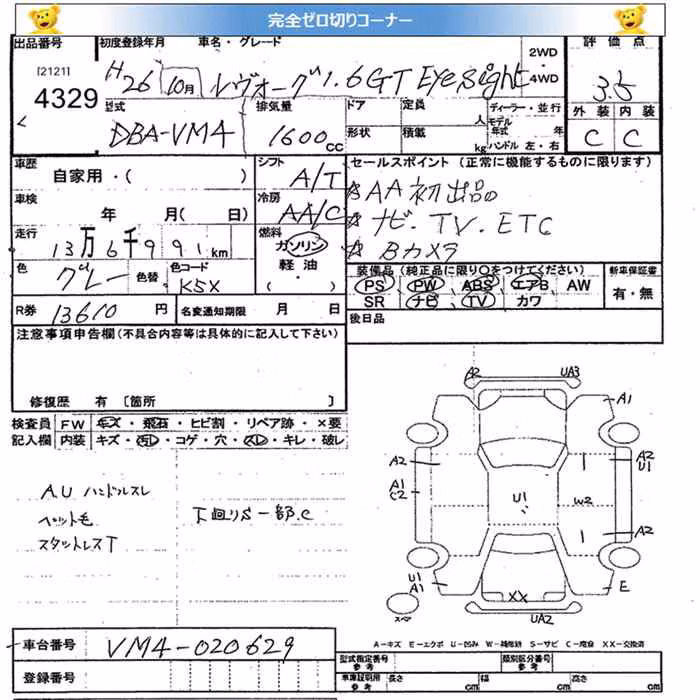 完全ゼロ切りコーナー
出品番号 初度登録年月 車名・グレード 評価点
[2121] 4329
H26 10月 レヴォーグ1.6GT EyeSight
2WD
4WD
3.5
型式 排気量 ドア 定員 人 ディーラー・並行
形状 積載 kg モデル年式 年
ハンドル 左・右
DBA-VM4 1600cc
外装 内装
C C
車歴 シフト セールスポイント (正常に機能するものに限ります)
自家用・( ) A/T
☆AA初出品の
車検 冷房
年 月(日) AA/C
☆ナビ.TV.ETC
走行 燃料
13万6千991km ガソリン
☆Bカメラ
軽油・
( )
色 色替 色コード
グレー K5X
装備品 (純正品に限り○をつけてください) 新車保証書
PS PW ABS エアB AW 有・無
SR ナビ TV カワ
R券 13610円 名変通知期限 月 日
後日品
注意事項申告欄(不具合内容等は具体的に記入して下さい)
修復歴 有 〔箇所 〕
検査員 FW キズ・飛石・ヒビ割・リペア跡・×要
記入欄 内装 キズ・汚レ・コゲ・穴・スレ・キレ・破レ
A.U ハンドルスレ
ペット毛 下回りS一部.C
スタットレスT
A2 UA3
A1
A2 A2
U1
A1
C2
U1 W2
A2
U1
A1 E
XX
スペア
UA2
A-キズ E-エクボ U-凹み W-補修跡 S-サビ C-腐食 XX-交換済
車台番号 VM4-020629
登録番号
型式指定番号 参考 類別区分番号 参考
車庫証明用 参考 長さ cm 幅 cm 高さ cm